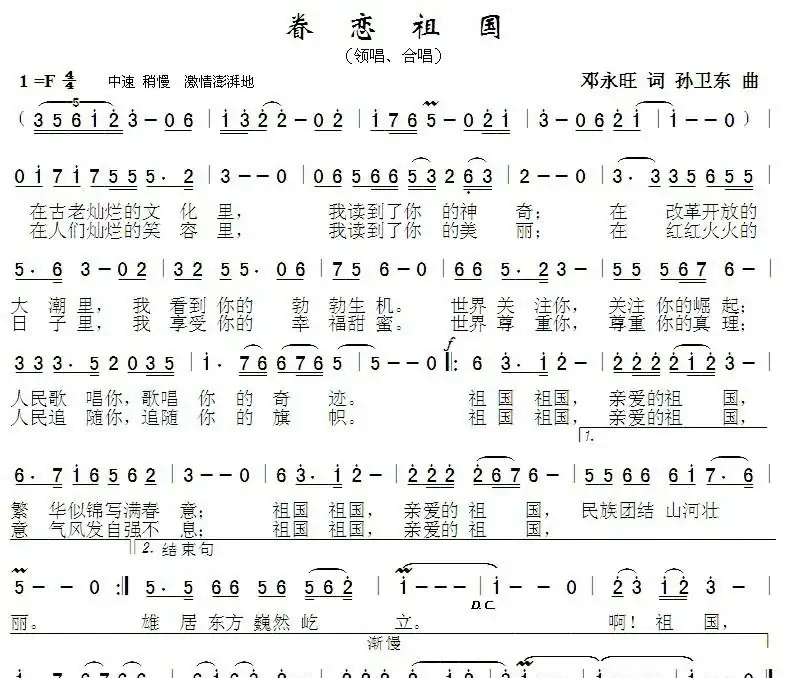 眷恋祖国
（领唱、合唱）
1=F 4/4 中速 稍慢 激情澎湃地 邓永旺 词 孙卫东 曲
5
（ 3 5 6 i 2 3 – 0 6 | i 3 2 2 – 0 2 | i 7 6 5 – 0 2 i | 3 – 0 6 2 i | i – – 0 ） |
0 i 7 i 7 5 5 5· 2 | 3 – – 0 | 0 6 5 6 6 5 3 2 6 3 | 2 – – 0 | 3· 3 3 5 6 5 5 |
在古老灿烂的文 化 里， 我读到了你 的神 奇； 在 改革开放的
在人们灿烂的笑 容 里， 我读到了你 的美 丽； 在 红红火火的
5· 6 3 – 0 2 | 3 2 5 5· 0 6 | 7 5 6 – 0 | 6 6 5· 2 3 – | 5 5 5 6 7 6 – |
大 潮 里， 我 看到 你的 勃 勃生 机。 世界 关 注你， 关注 你的崛 起；
日 子 里， 我 享受 你的 幸 福甜 蜜。 世界 尊 重你， 尊重 你的真 理；
f
3 3 3· 5 2 0 3 5 | i· 7 6 6 7 6 5 | 5 – – 0 |: 6 3· i 2 – | 2 2 2 2 2 i 2 3 – |
人民歌 唱你，歌唱 你 的 奇 迹。 祖 国 祖国， 亲爱的祖 国，
人民追 随你，追随 你 的 旗 帜。 祖 国 祖国， 亲爱的祖 国，
1.
6· 7 i 6 5 6 2 | 3 – – 0 | 6 3· i 2 – | 2 2 2 2 6 7 6 – | 5 5 6 6 6 i 7· 6 |
繁 华似锦写满春 意； 祖国 祖国， 亲爱的 祖 国， 民族团结 山河壮
意 气风发自强不 息； 祖国 祖国， 亲爱的 祖 国，
2. 结束句
5 – – 0 :| 5· 5 6 6 5 6 5 6 2 | i – – – | i – – 0 | 2 3 i 2 3 – |
D.C.
丽。 雄 居 东方 巍然 屹 立。 啊！ 祖 国，
渐慢